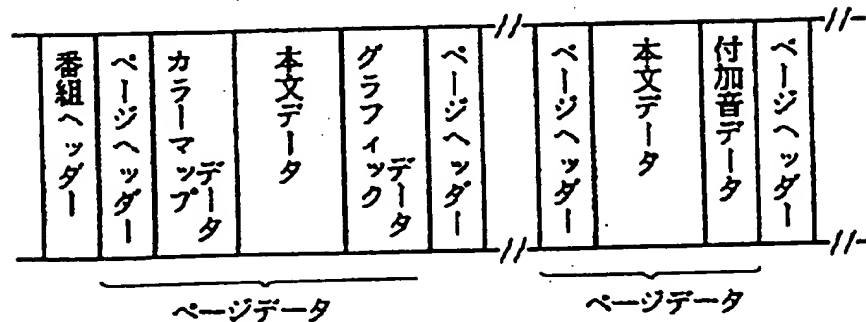 番組ヘッダー
ページヘッダー
カラーマップ
データ
本文データ
グラフィック
データ
ページヘッダー
ページヘッダー
本文データ
付加音データ
ページヘッダー
ページデータ
ページデータ